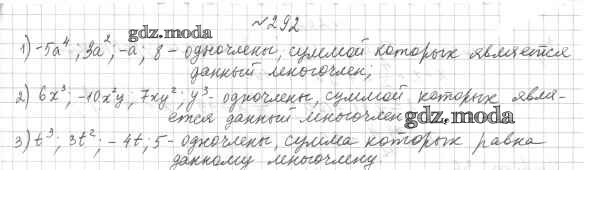 №292
gdz.moda
1) -5a⁴; 3a²; -a; 8 - одночлены, суммой которых является
данный многочлен;
2) 6x³; -10x²y; 7xy²; y³ - одночлены, суммой которых явля-
ется данный многочлен
gdz.moda
3) t³; 3t²; -4t; 5 - одночлены, сумма которых равна
данному многочлену